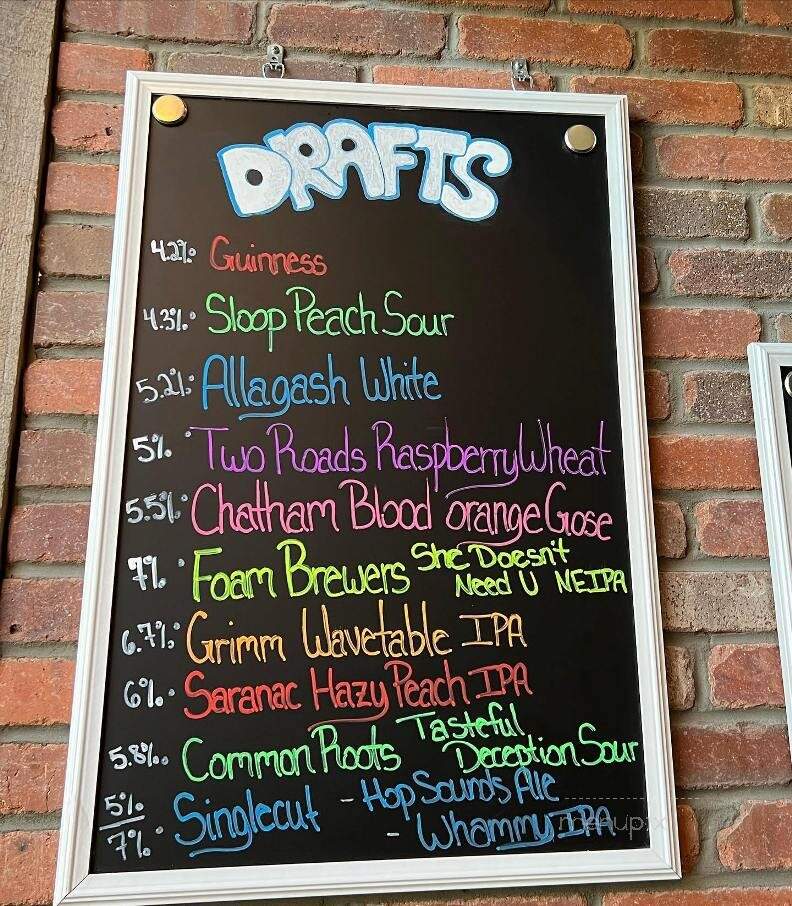 DRAFTS
4.2% Guinness
4.3% Sloop Peach Sour
5.2% Allagash White
5% Two Roads Raspberry Wheat
5.5% Chatham Blood orange Gose
7% Foam Brewers She Doesn't
Need U NEIPA
6.7% Grimm Wavetable IPA
6% Saranac Hazy Peach IPA
5.8% Common Roots Tasteful
Deception Sour
5% Singlecut - Hop Sounds Ale
7% - Whammy IPA